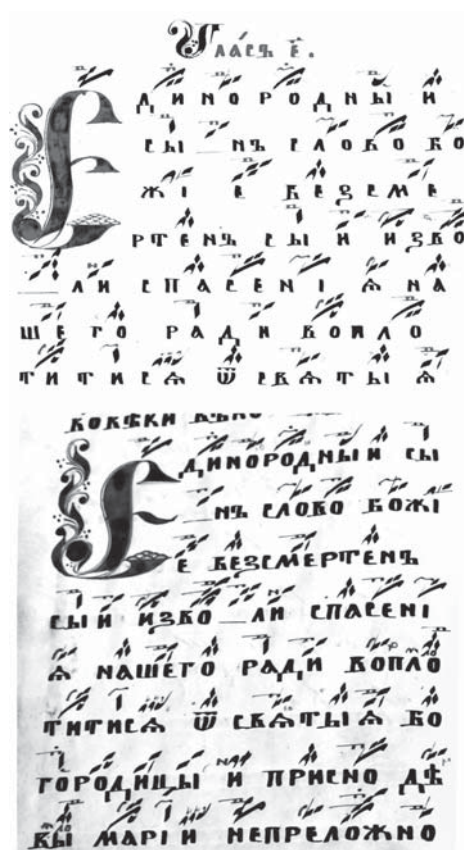 Гла́съ е҃.
Единородны и
сы нъ слово бо
жі е безсме
ртенъ сы и изво
ли спасені ѧ на
шего ради вопло
титисѧ ѿ свѧты ѧ
вовѣки
Единородныи сы
нъ слово божі
е безсмертенъ
сыи изво ли спасені
ѧ нашего ради вопло
титисѧ ѿ свѧтыѧ бо
городицы и присно дѣ
вы маріи непреложно